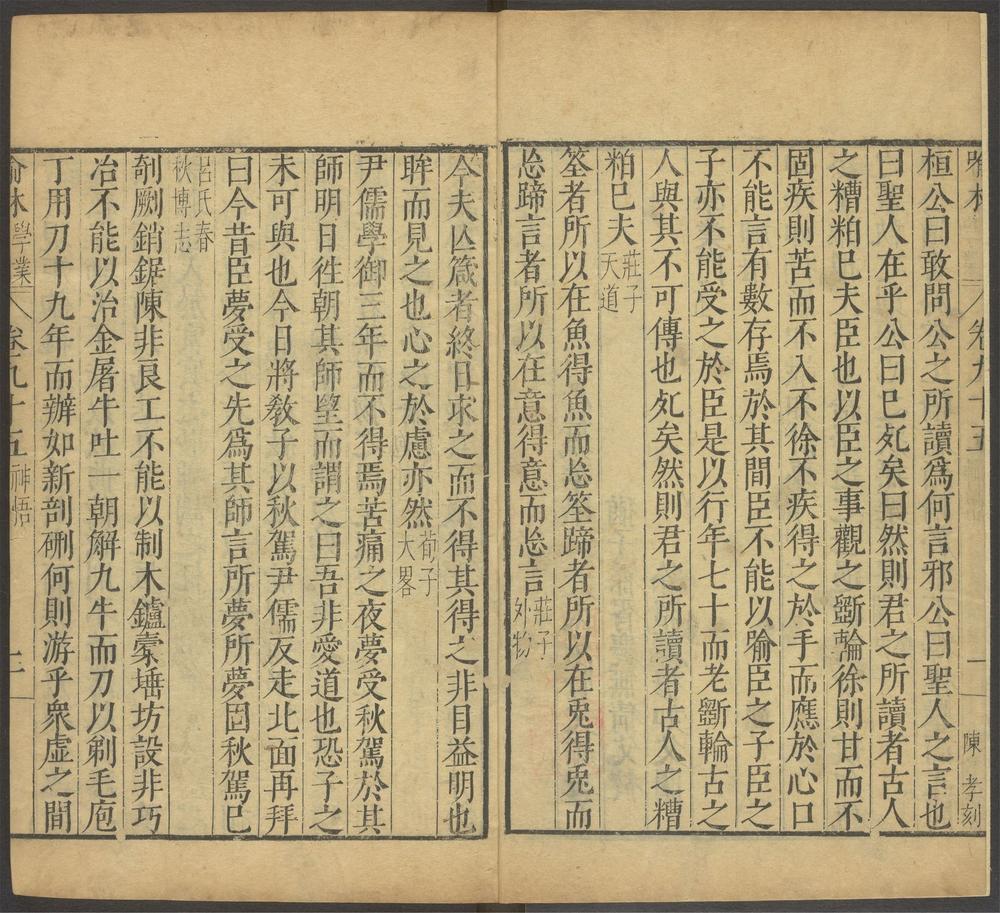 喻林 卷九十五 一 陳孝刻
桓公曰敢問公之所讀爲何言邪公曰聖人之言也
曰聖人在乎公曰已死矣曰然則君之所讀者古人
之糟粕已夫臣也以臣之事觀之斵輪徐則甘而不
固疾則苦而不入不徐不疾得之於手而應於心口
不能言有數存焉於其間臣不能以喻臣之子臣之
子亦不能受之於臣是以行年七十而老斵輪古之
人與其不可傳也死矣然則君之所讀者古人之糟
粕已夫莊子天道
筌者所以在魚得魚而忘筌蹄者所以在兎得兎而
忘蹄言者所以在意得意而忘言莊子外物
今夫亾箴者終日求之而不得其得之非目益明也
眸而見之也心之於慮亦然荀子大畧
尹儒學御三年而不得焉苦痛之夜夢受秋駕於其
師明日徃朝其師朢而謂之曰吾非愛道也恐子之
未可與也今日將敎子以秋駕尹儒反走北面再拜
曰今昔臣夢受之先爲其師言所夢所夢固秋駕已
呂氏春秋博志
剞劂銷鋸陳非良工不能以制木鑪橐埵坊設非巧
冶不能以治金屠牛吐一朝解九牛而刀以剃毛庖
丁用刀十九年而辦如新剖硎何則游乎衆虛之間
喻林 學業 卷九十五 神悟 二